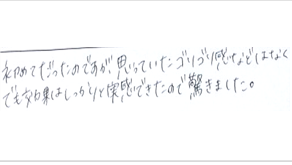 初めてだったのですが、思っていたゴリゴリ感などはなく
でも効果はしっかりと実感できたので驚きました。